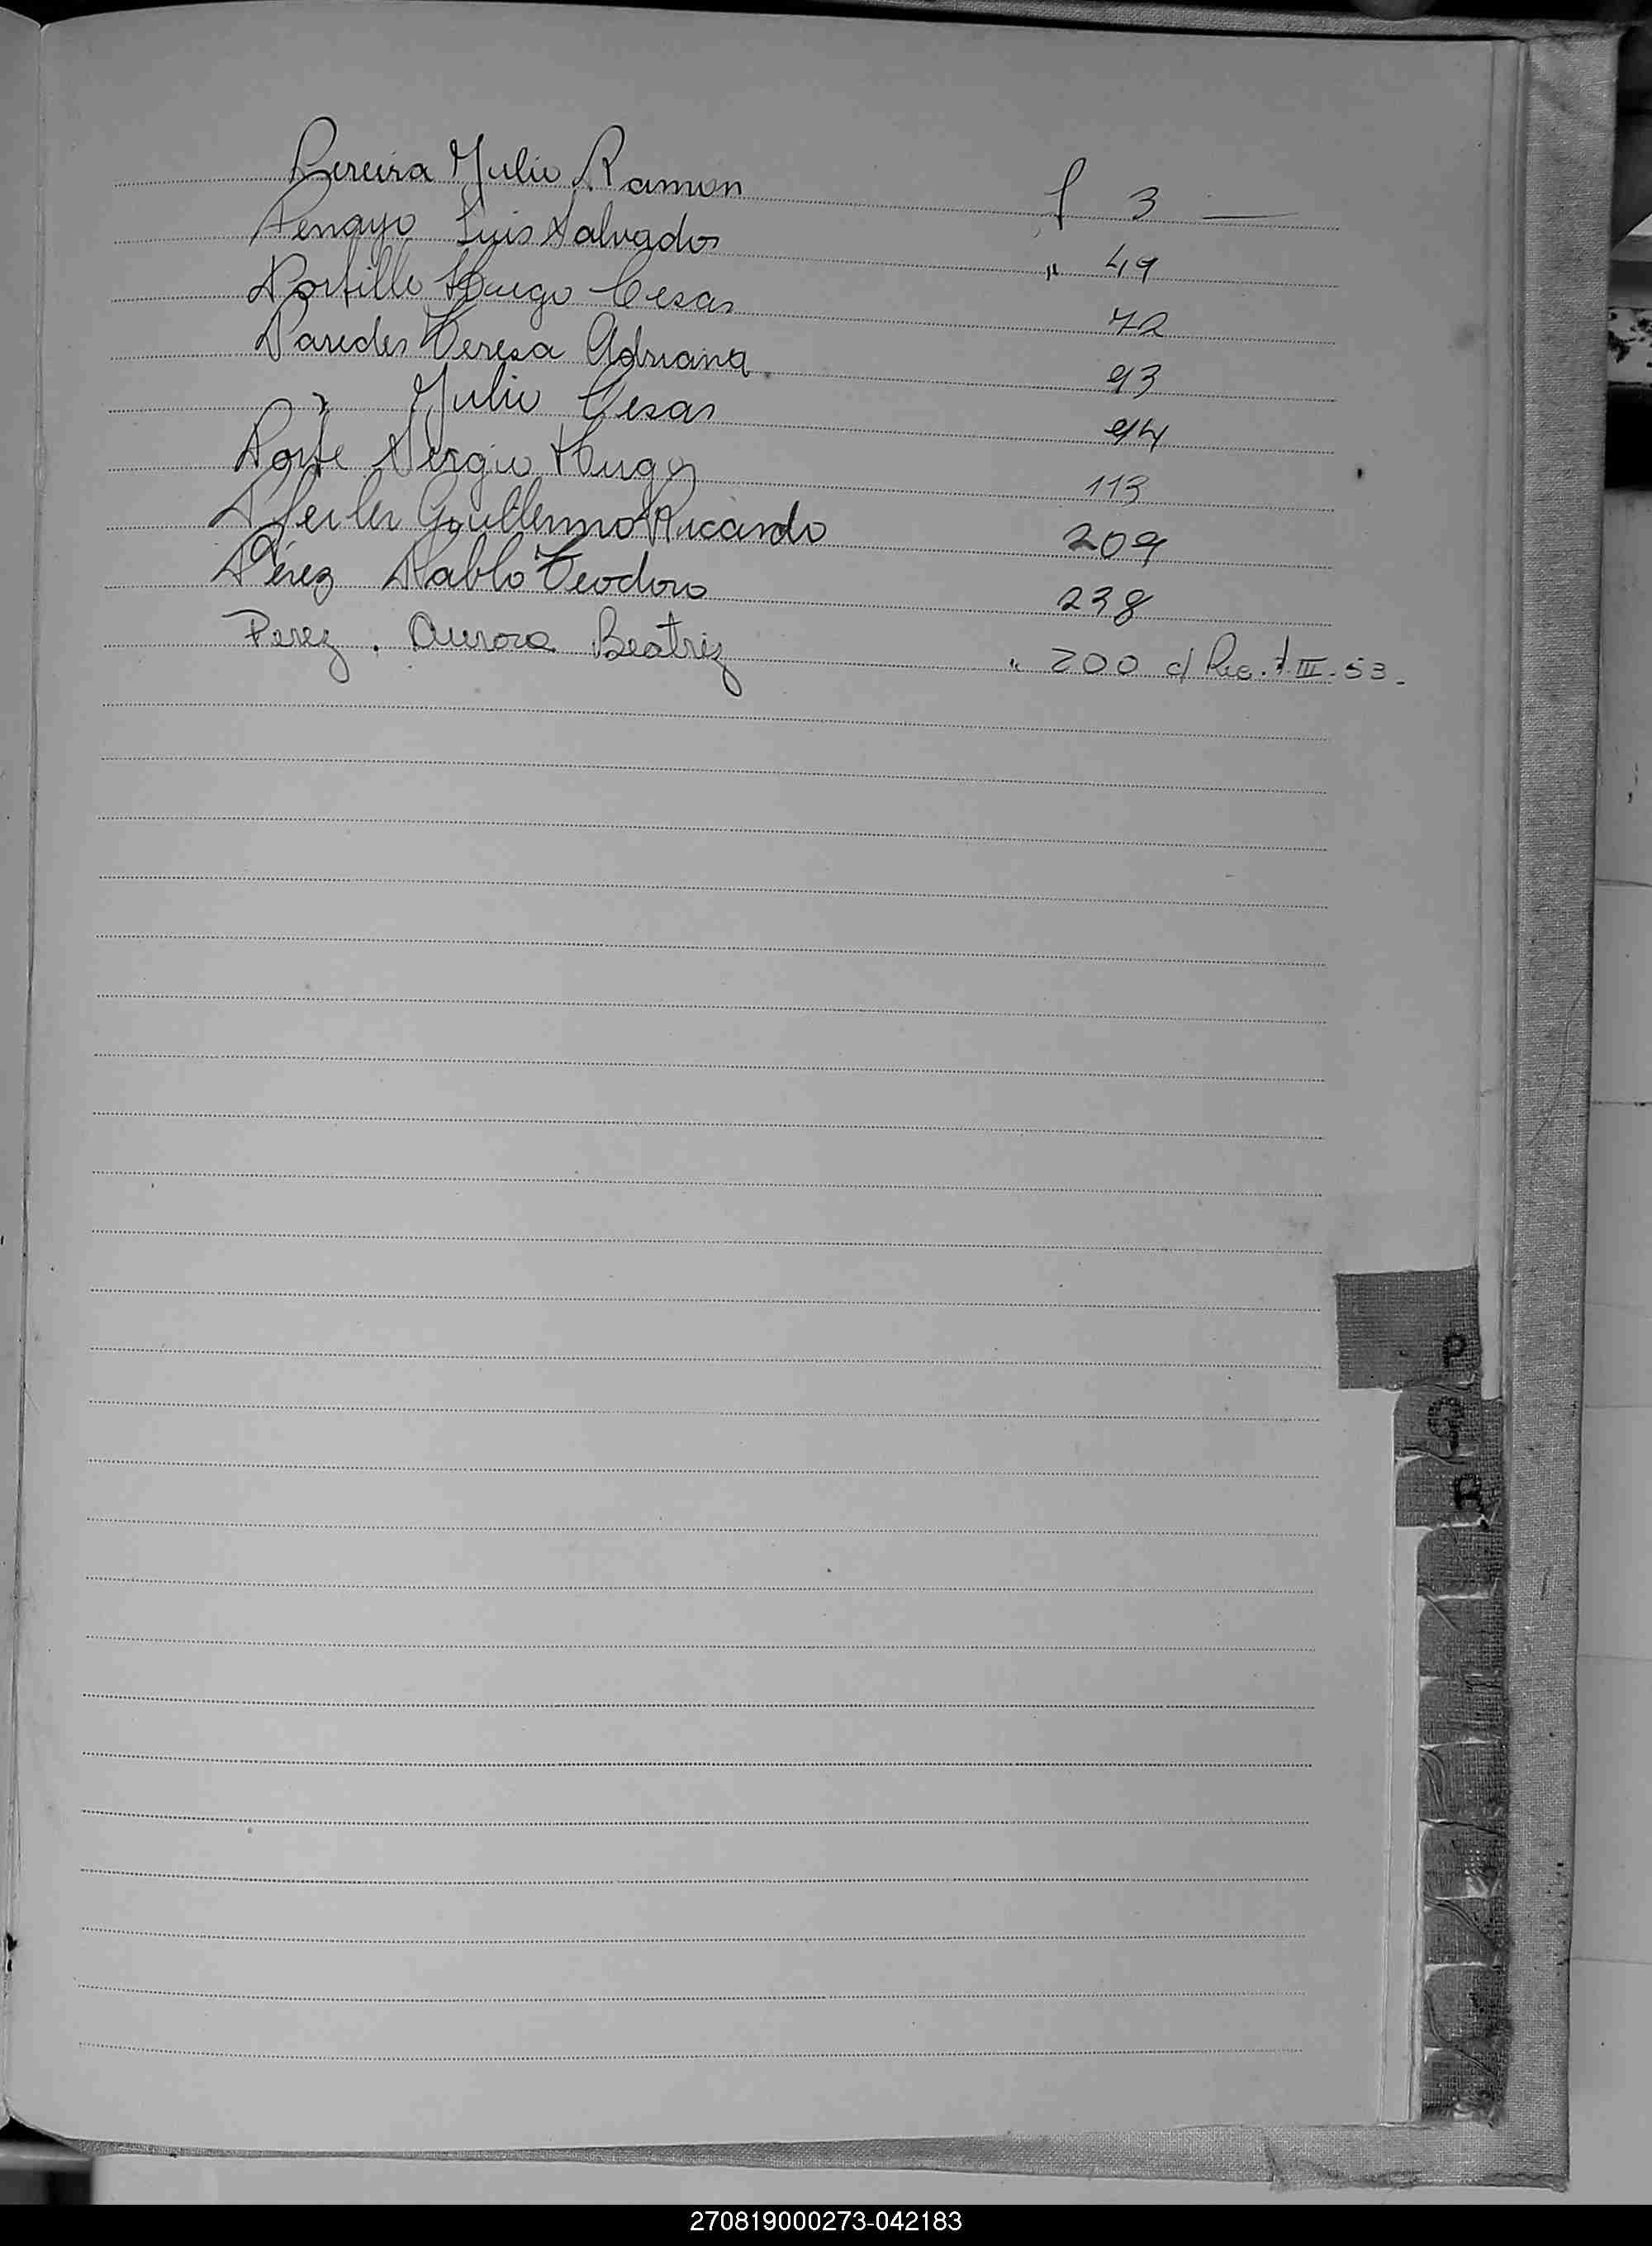 Pereira Julio Ramon f 3 —
Penayo Luis Salvador " 49
Portillo Hugo Cesar 72
Paredes Teresa Adriana 93
" Julio Cesar 94
Porte Sergio Hugo 113
Pfeiler Guillermo Ricardo 209
Pérez Pablo Teodoro 238
Perez. Aurora Beatriz " 200 d/ III-53.
P
Q
R
270819000273-042183